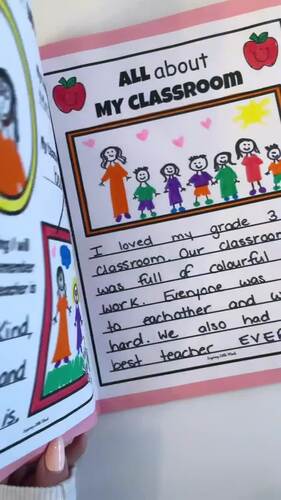 ALL about
MY CLASSROOM
I loved my grade 3
classroom. Our classroom
was full of colourful
work. Everyone was
to eachother and
hard. We also had
best teacher EVER
will
teacher is
kind,
and
is.